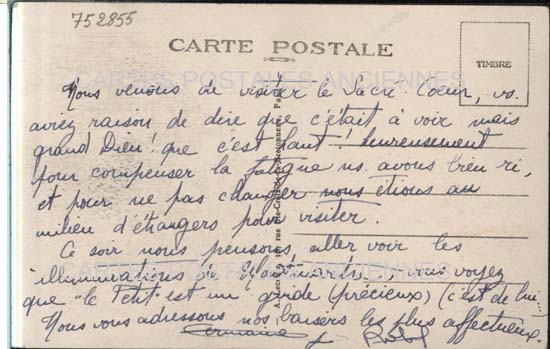 752855
CARTE POSTALE
TIMBRE
CARTES POSTALES ANCIENNES
Nous venons de visiter le Sacré Coeur, vs.
aviez raison de dire que c'était à voir mais
grand Dieu! que c'est haut! heureusement
pour compenser la fatigue ns. avons bien ri,
et pour ne pas changer nous étions au
milieu d'étrangers pour visiter.
Ce soir nous pensons aller voir les
illuminations de Montmartre, vous voyez
que "le Petit" est un guide (précieux) (c'est de lui...
Nous vous adressons nos baisers les plus affectueux.
Germaine
CARTES POSTALES ANCIENNES